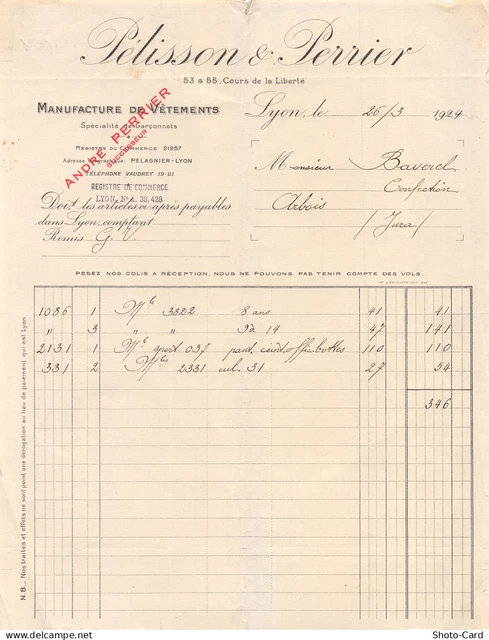 Pélisson & Perrier
53 & 55, Cours de la Liberté
MANUFACTURE DE VÊTEMENTS
Spécialité de Garçonnets
REGISTRE DU COMMERCE 21957
Adresse Télégraphique: PELAGNIER-LYON
TÉLÉPHONE VAUDREY 19-21
ANDRÉ PERRIER
SUCCESSEUR
REGISTRE DE COMMERCE
LYON, No A. 35,428
Lyon, le 26/3 1924
Monsieur Baverel
Confection
Arbois
(Jura)
Doit les articles ci-après payables
dans Lyon, comptant
Remis G. V.
PESEZ NOS COLIS A RÉCEPTION, NOUS NE POUVONS PAS TENIR COMPTE DES VOLS
1036 1 Me 3822 8 ans 41 41
" 3 " " 9 à 14 47 141
2131 1 Me sport 037 pant. ceint. offic. bottes 110 110
331 2 Mes 2331 cul. 31 27 54
346
N.B. _ Nos traites et effets ne sont point une dérogation au lieu de paiement qui est Lyon
www.delcampe.net
Photo-Card